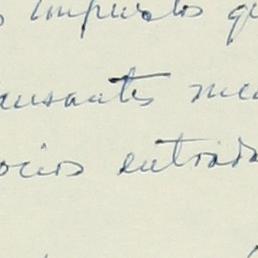 s impuestos qu
ausantes me
ocios entrada